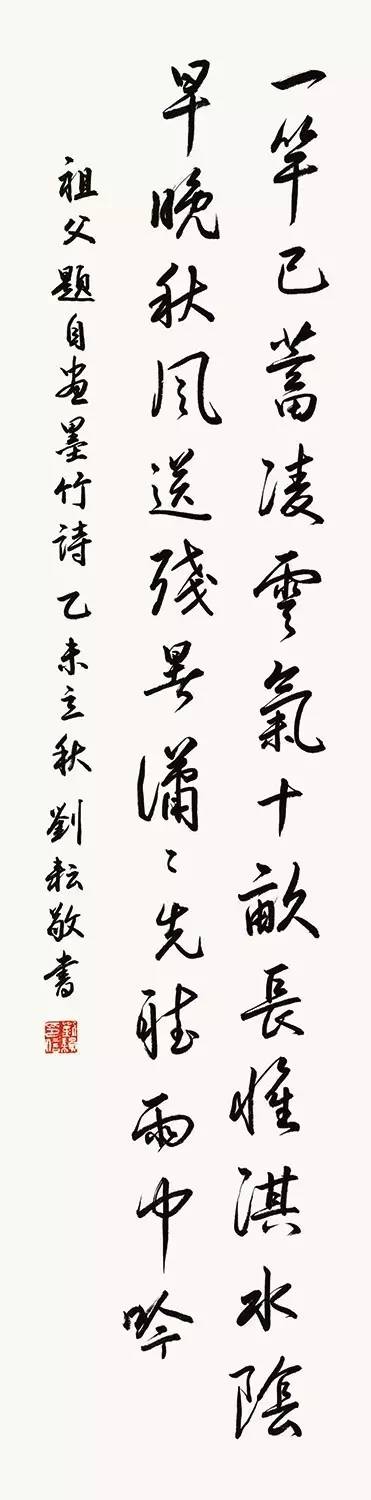 一竿已蓄凌雲氣十畝長惟淇水陰
早晚秋風送殘暑瀟〻先聽雨中吟
祖父題自畫墨竹詩乙未立秋劉耘敬書